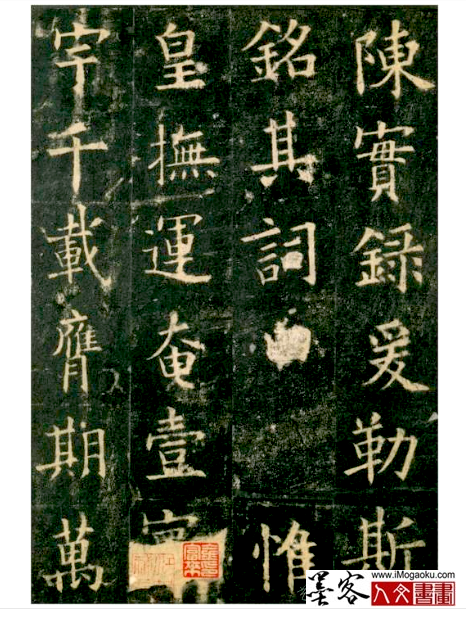 陳實録爰勒斯
銘其詞惟
皇撫運奄壹
宇千載膺期萬
www.iMogaoku.com
墨客
人文書畫